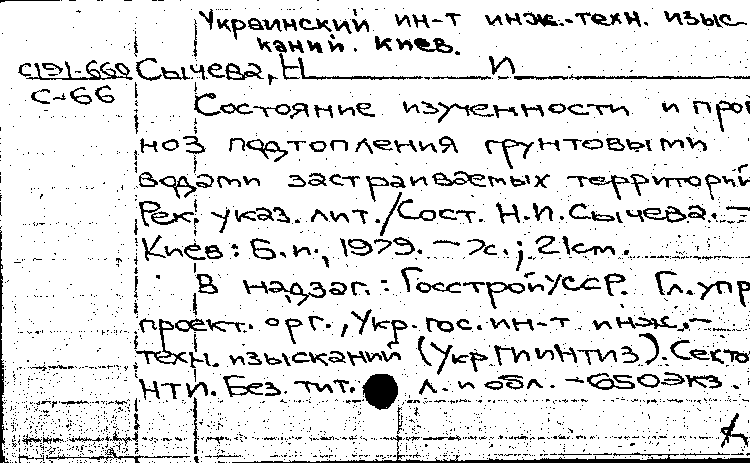 Украинский ин-т инж.-техн. изыс-
каний. Киев.
С191-660 Сычева, Н И
С-66
Состояние изученности и прог
ноз подтопления грунтовыми
водами застраиваемых территорий
Рек. указ. лит./Сост. Н.И.Сычева. —
Киев: Б.и., 1979. — ; 21см.
В надзаг.: Госстрой УССР. Гл. упр
проект. орг., Укр. гос. ин-т инж.-
техн. изысканий (УкрГИИНТИЗ). Секто
НТИ. Без тит. л. и обл. - 650 экз.